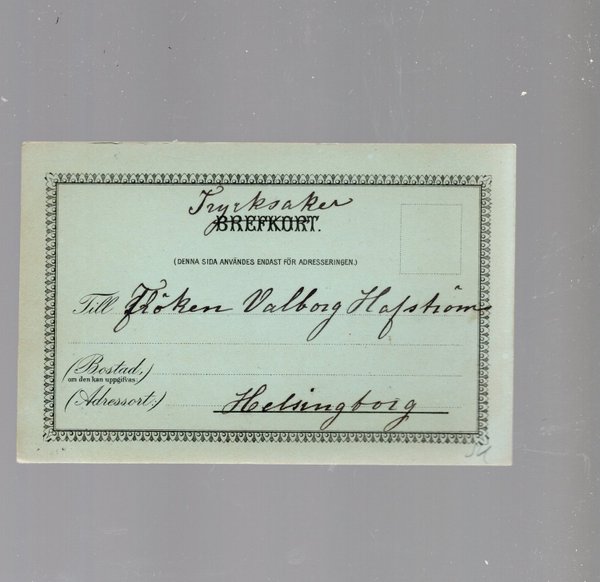 Trycksaker
BREFKORT.
(DENNA SIDA ANVÄNDES ENDAST FÖR ADRESSERINGEN.)
Till Fröken Valborg Hafström
(Bostad,)
om den kan uppgifvas:
(Adressort:) Helsingborg